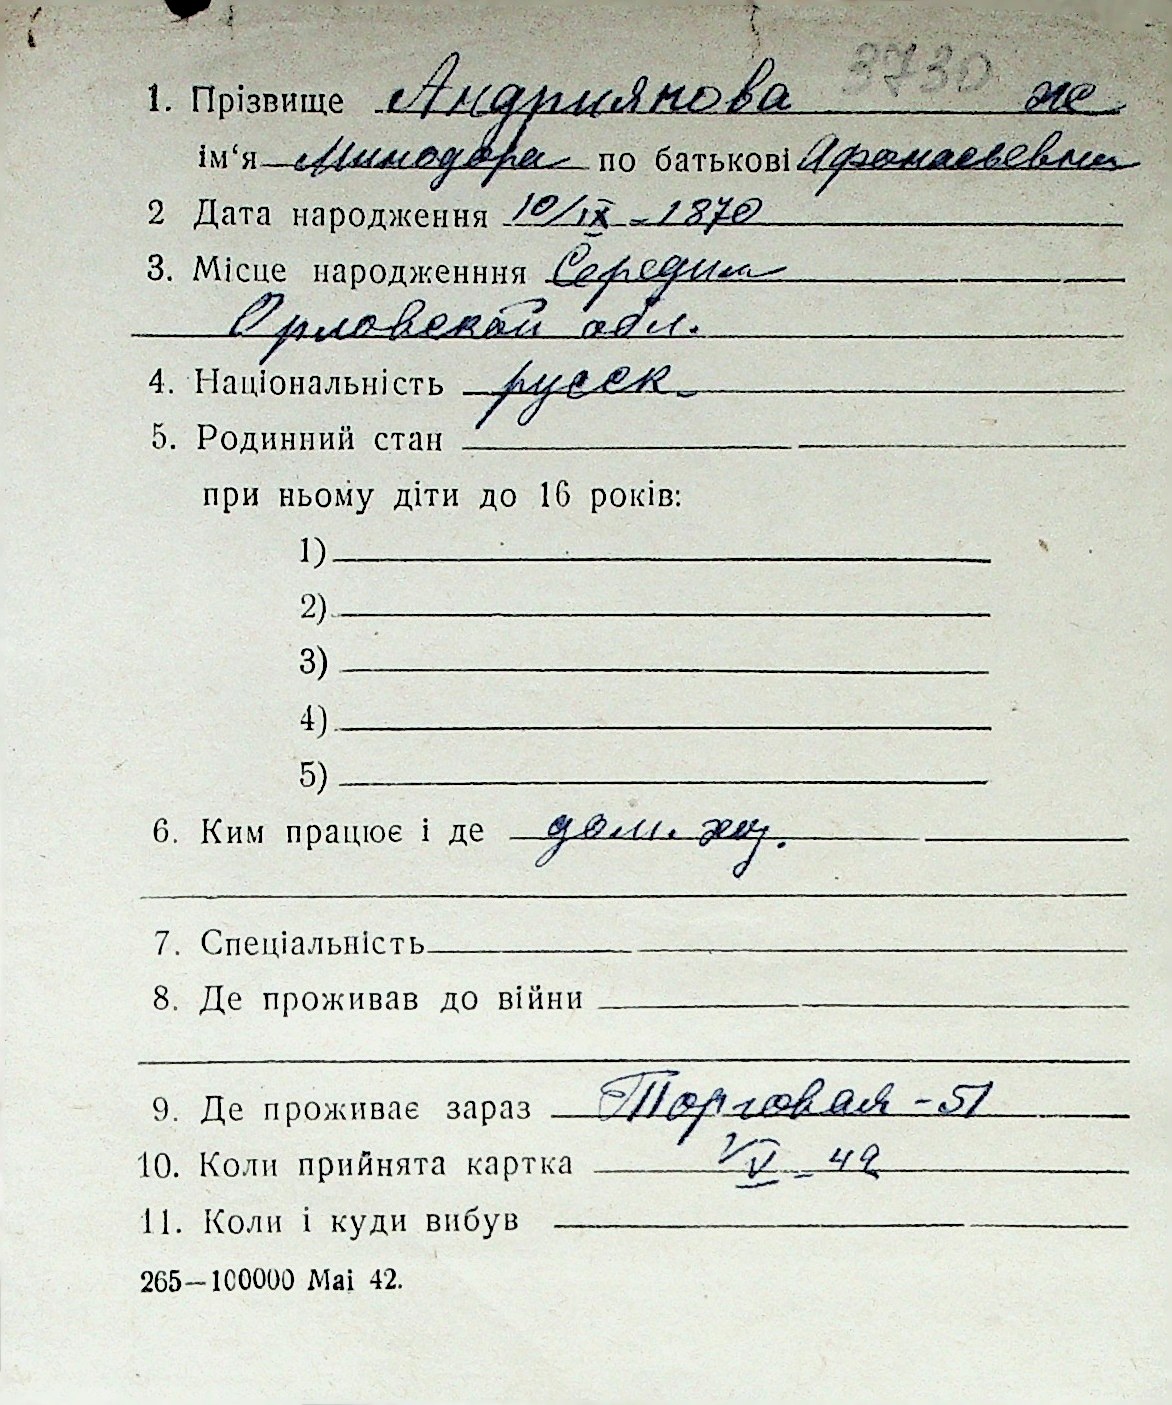 3730
1. Прізвище Андриянова же
ім‘я Минодора по батькові Афонасьевна
2 Дата народження 10/IX - 1870
3. Місце народженння Середина
Орловской обл.
4. Національність русск.
5. Родинний стан
при ньому діти до 16 років:
1)
2)
3)
4)
5)
6. Ким працює і де дом. хоз.
7. Спеціальність
8. Де проживав до війни
9. Де проживає зараз Торговая - 51
10. Коли прийнята картка V - 42
11. Коли і куди вибув
265—100000 Маі 42.